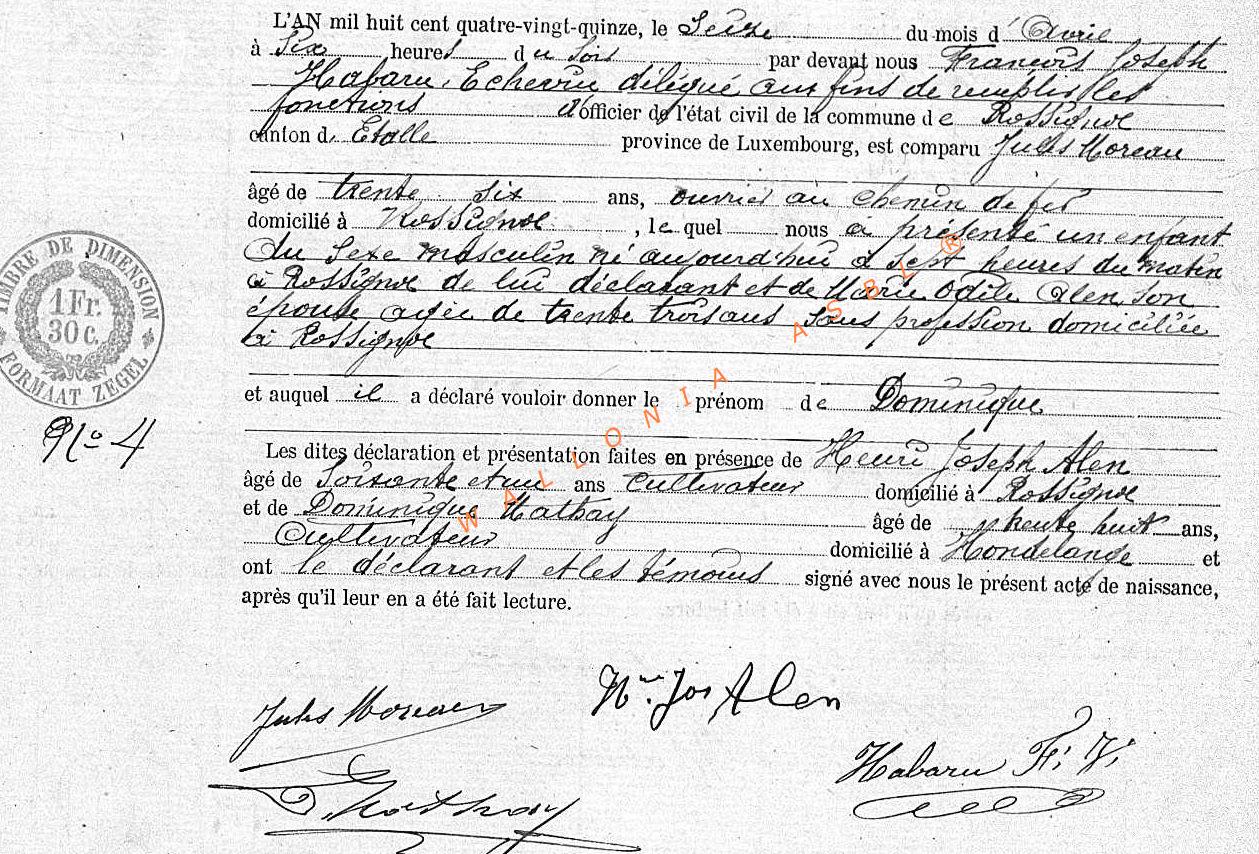 L'AN mil huit cent quatre-vingt-quinze, le Seize du mois d' Avril
à Six heures du Soir par devant nous François Joseph
Habaru, Echevin délégué aux fins de remplir les
fonctions d'officier de l'état civil de la commune de Rossignol
canton d. Etalle province de Luxembourg, est comparu Jules Moreau
âgé de trente six ans, ouvrier au chemin de fer
domicilié à Rossignol, le quel nous a présenté un enfant
du sexe masculin né aujourd'hui à sept heures du matin
à Rossignol de lui déclarant et de Marie Odile Alen son
épouse agée de trente trois ans sans profession domiciliée
à Rossignol
et auquel il a déclaré vouloir donner le prénom de Dominique
Les dites déclaration et présentation faites en présence de Henri Joseph Alen
âgé de Soixante et un ans Cultivateur domicilié à Rossignol
et de Dominique Mathay âgé de trente huit ans,
Cultivateur domicilié à Hondelange et
ont le déclarant et les témoins signé avec nous le présent acte de naissance,
après qu'il leur en a été fait lecture.
TIMBRE DE DIMENSION
1 Fr.
30 c.
FORMAAT ZEGEL
No 4
WALLONIA ASBL ®
Jules Moreau
Hri Jos Alen
D. Mathay
Habaru F. J.